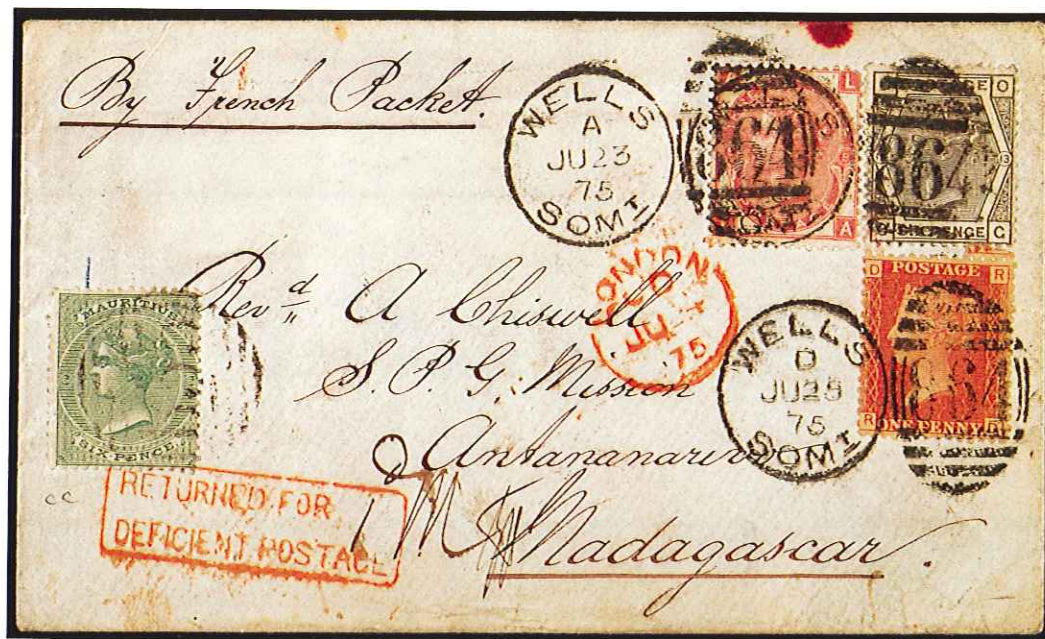 By French Packet.
WELLS
A
JU23
75
SOMT
L
A
864
O
864
SIX PENCE G
LONDON
JU
75
D POSTAGE R
R ONE PENNY D
WELLS
D
JU28
75
SOMT
MAURITIUS
SIX PENCE
Revd A Chiswell
S. P. G. Mission
Antananarivo
Madagascar.
cc
RETURNED FOR
DEFICIENT POSTAGE